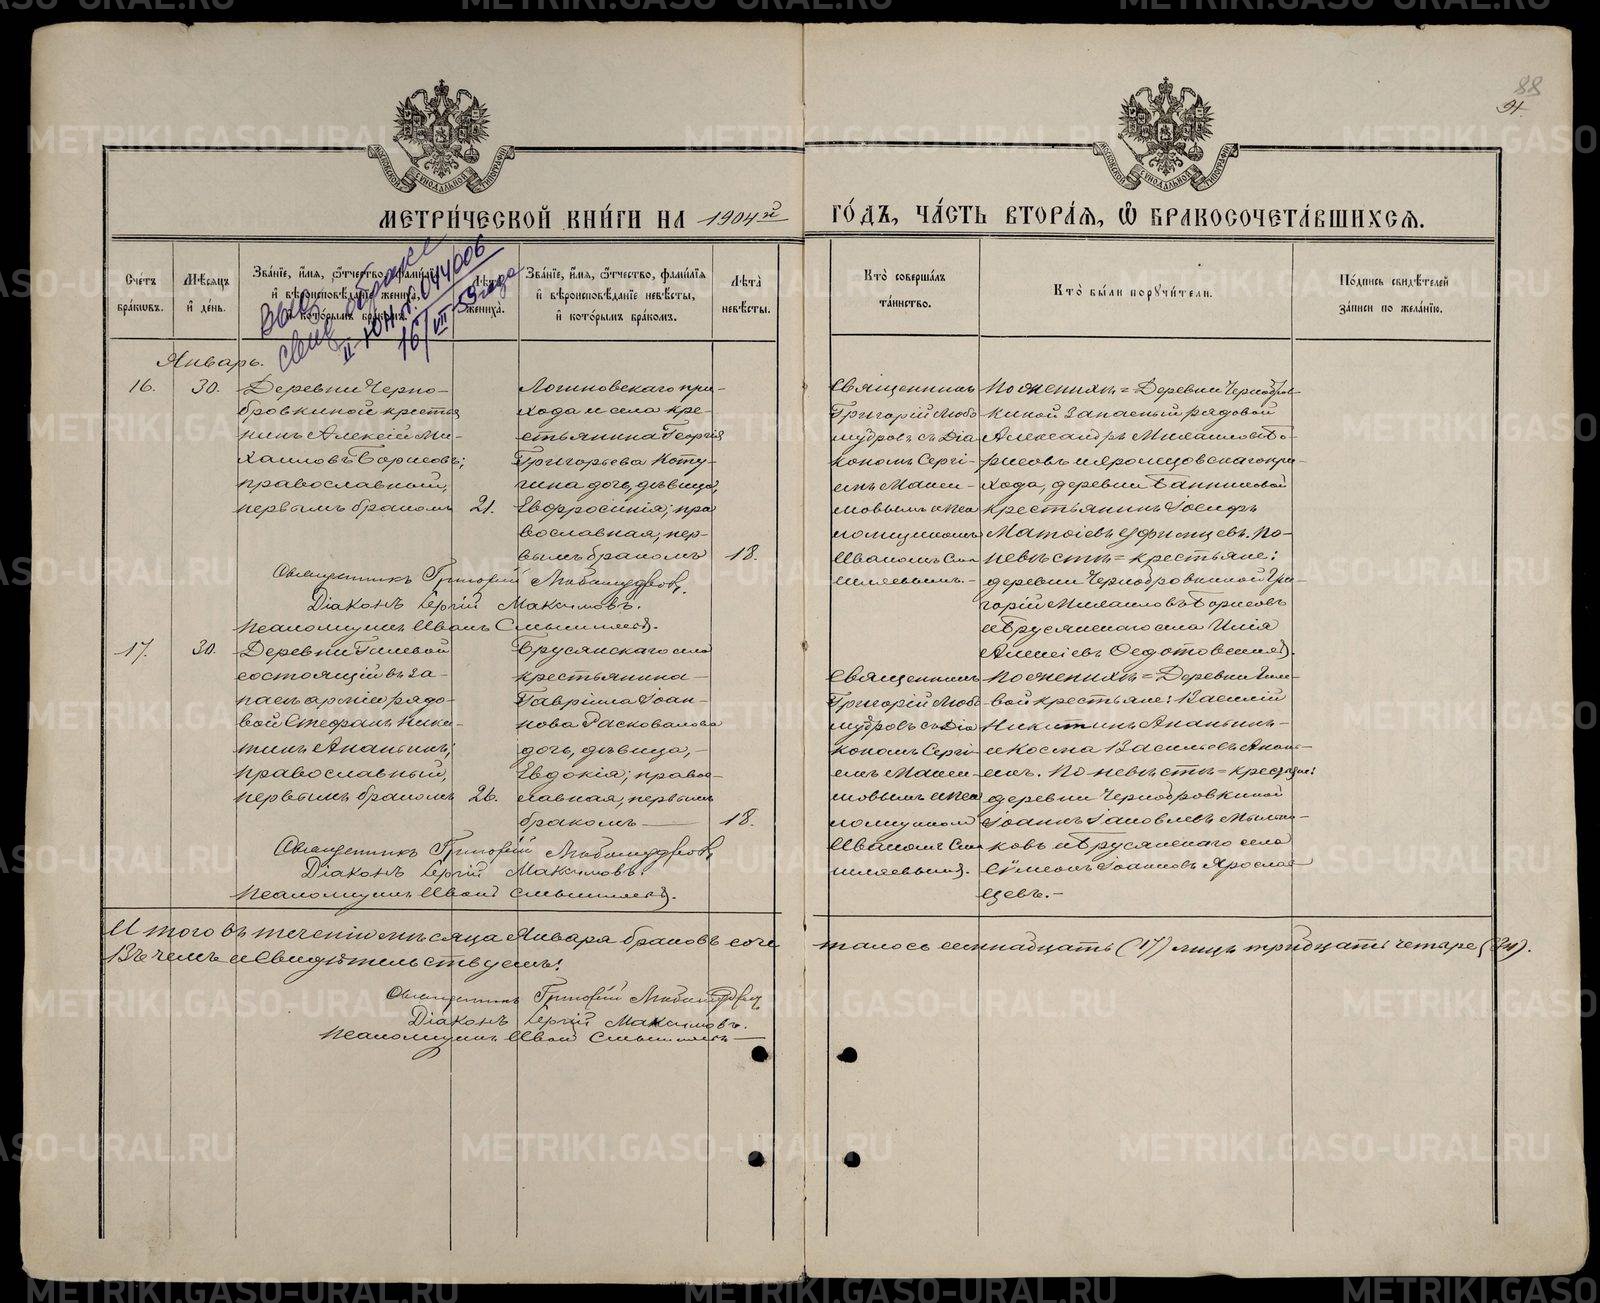 88
91.
МЕТРИ́ЧЕСКОЙ КНИ́ГИ НА 1904й
ГО́ДЪ, ЧА́СТЬ ВТОРА́Я, Ѿ БРАКОСОЧЕТА́ВШИХСЯ.
Сче́тъ бра́ковъ.
Мѣ́сяцъ и҆ де́нь.
Зва́нїе, и҆́мя, ѻ҆́тчество, фамилїя
и҆ вѣроисповѣ́данїе жениха̀,
и҆ кото́рымъ бра́комъ.
Лѣта̀ жениха̀.
Зва́нїе, и҆́мя, ѻ҆́тчество, фамилїя
и҆ вѣроисповѣ́данїе невѣ́сты,
и҆ кото́рымъ бра́комъ.
Лѣта̀ невѣ́сты.
Кто̀ соверша́лъ та́инство.
Кто̀ бы́ли поручи́тели.
По́дпись свидѣ́телей за́писи по жела́нїю.
II-ЮН №044006
16/VII-53 года
Январь.
16.
30.
Деревни Черно-
бровкиной крестья
нинъ Алексій Ми-
хаиловъ Борисовъ;
православный,
первымъ бракомъ
21.
Логиновскаго при-
хода и села кре-
стьянина Георгія
Григорьева Коту-
гина дочь, дѣвица,
Евфросинія; пра
вославная, пер-
вымъ бракомъ
18.
Священникъ
Григорій Любо
мудровъ съ Діа
кономъ Сергі-
емъ Макси-
мовымъ и пса
ломщикомъ
Иваномъ Смы
шляевымъ.-
По женихѣ = Деревни Чернобров
киной Запасный рядовой
Александръ Михаиловъ Бо-
рисовъ и при-
хода, деревни
крестьянинъ Іосифъ
Матѳіевъ Уфимцевъ. По
невѣстѣ = крестьяне:
деревни Чернобровкиной Гри-
горій Михаиловъ Борисовъ
и Брусянскаго села Илія
Алексіевъ
Священникъ Григорій Любомудровъ,
Діаконъ Сергій Максимовъ.
Псаломщикъ Иванъ Смышляевъ.
17.
30.
Деревни Гилевой
состоящій въ за-
пасѣ арміи рядо-
вой Стефанъ Ники-
тинъ Ананьинъ;
православный,
первымъ бракомъ
26.
Брусянскаго села
крестьянина
Гавріила Іоан-
нова Расковалова
дочь, дѣвица,-
Евдокія; право-
славная, первымъ
бракомъ
18.
Священникъ
Григорій Любо
мудровъ съ Діа
кономъ Сергі-
емъ Макси-
мовымъ и пса
ломщикомъ
Иваномъ Смы
шляевымъ.
По женихѣ = Деревни Гиле
вой крестьяне: Василій
Никитинъ Ананьинъ-
и Косма Васильевъ Анань-
инъ. По невѣстѣ = крестьяне:
деревни Чернобровкиной
Іоаннъ Іаковлевъ
ковъ и Брусянскаго села
Сѵмеонъ Іоанновъ Ярослав
цевъ.-
Священникъ Григорій Любомудровъ,
Діаконъ Сергій Максимовъ.
Псаломщикъ Иванъ Смышляевъ.
И того въ теченіи мѣсяца Января браковъ соче
талось семнадцать (17) лицъ тридцать четыре (34).
Въ чемъ и свидѣтельствуемъ:
Священникъ Григорій Любомудровъ
Діаконъ Сергій Максимовъ.
Псаломщикъ Иванъ Смышляевъ